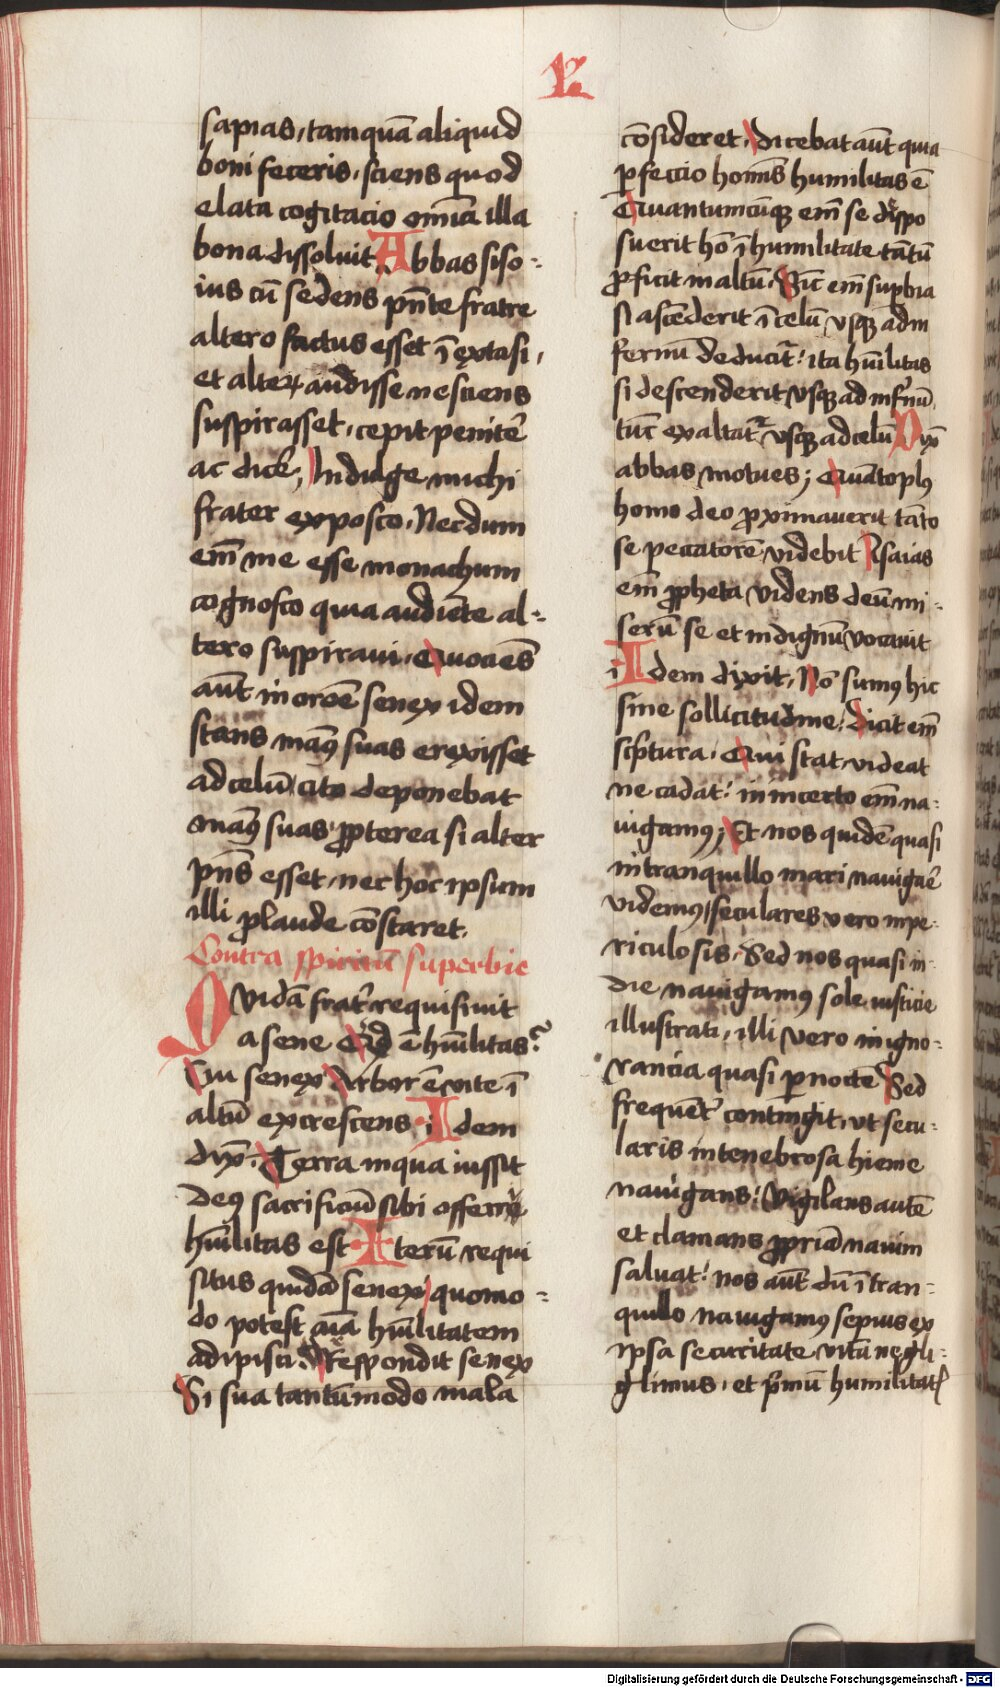 R
sapias, tamquā aliquid
boni feceris, sciens quod
elata cogitacio om̄ia illa
bona dissoluit Abbas siso-
ius cū sedens pn̄te fratre
altero factus esset ī extasi,
et alter audisse nesciens
suspirasset, cepit penite͛
ac dice͛, Indulge michi
frater exposco, Necdum
em̄ me esse monachum
cognosco quia audiēte al-
tero suspiraui, Quociēs
aūt in orōe senex idem
stans man⁹ suas erexisset
ad celū cito deponebat
man⁹ suas, ꝓpterea si alter
pn̄s esset, nec hoc ipsum
illi ꝓ laude cōstaret.
Contra spiritū superbie
Quidā frat͛ requisiuit
a sene Qͥd ē hūilitas?
Cui senex Arbor ē vite ī
altū excrescens. Idem
dix̄. Terra in qua iussit
de⁹ sacrificiū sibi offerri
hūilitas est. Iterū requi
situs quidā senex, quomo-
do potest aīa hūilitatem
adipisci. Respondit senex
Si sua tantūmodo mala
cōsideret, dicebat aūt quia
ꝑfeccio hoīs humilitas ē
Quantumcūqꝫ em̄ se dispo
suerit hō ī humilitate tātū
ꝓficit in altū. Sic̄ em̄ suꝑbia
si ascēderit ī celū vsqꝫ ad in
fernū deducit᷑: ita hūilitas
si descenderit vsqꝫ ad inf͛nū
tūc exaltat᷑ vsqꝫ ad celū Dix̄
abbas motues; Quāto pl⁹
homo deo ꝓximauerit tāto
se peccatorē videbit Isaias
em̄ ꝓpheta videns deū mi-
serū se et indignū vocauit
Idem dixit, Nō sum⁹ hic
sine sollicitudine: dicit em̄
scͥptura. Qui stat videat
ne cadat: in incerto em̄ na-
uigam⁹; Et nos quidē quasi
in tranquillo mari nauiga͛e
videm⁹, seculares vero in pe-
riculosis. Sed nos quasi in
die nauigam⁹ sole iusticie
illustrati, illi vero in igno-
rancia quasi ꝑ noctē Sed
frequēt͛ contingit, vt secu-
laris in tenebrosa hieme
nauigans: vigilans autē
et clamans ꝓpriā nauim
saluat: nos aūt dū ī tran-
quillo nauigam⁹ sepius ex
ipsa securitate vitā negli-
glimus, et pͥmū humilitatꝭ
Digitalisierung gefördert durch die Deutsche Forschungsgemeinschaft - DFG